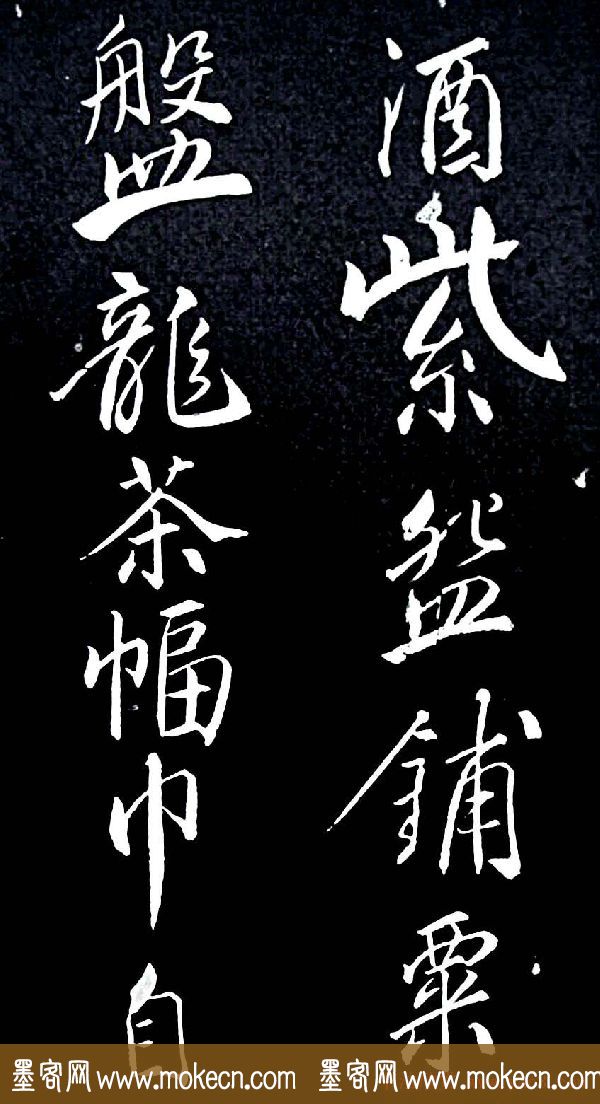 酒紫盌鋪粟
盤龍茶幅巾自
墨客网 www.mokecn.com 墨客网 www.mokecn.com